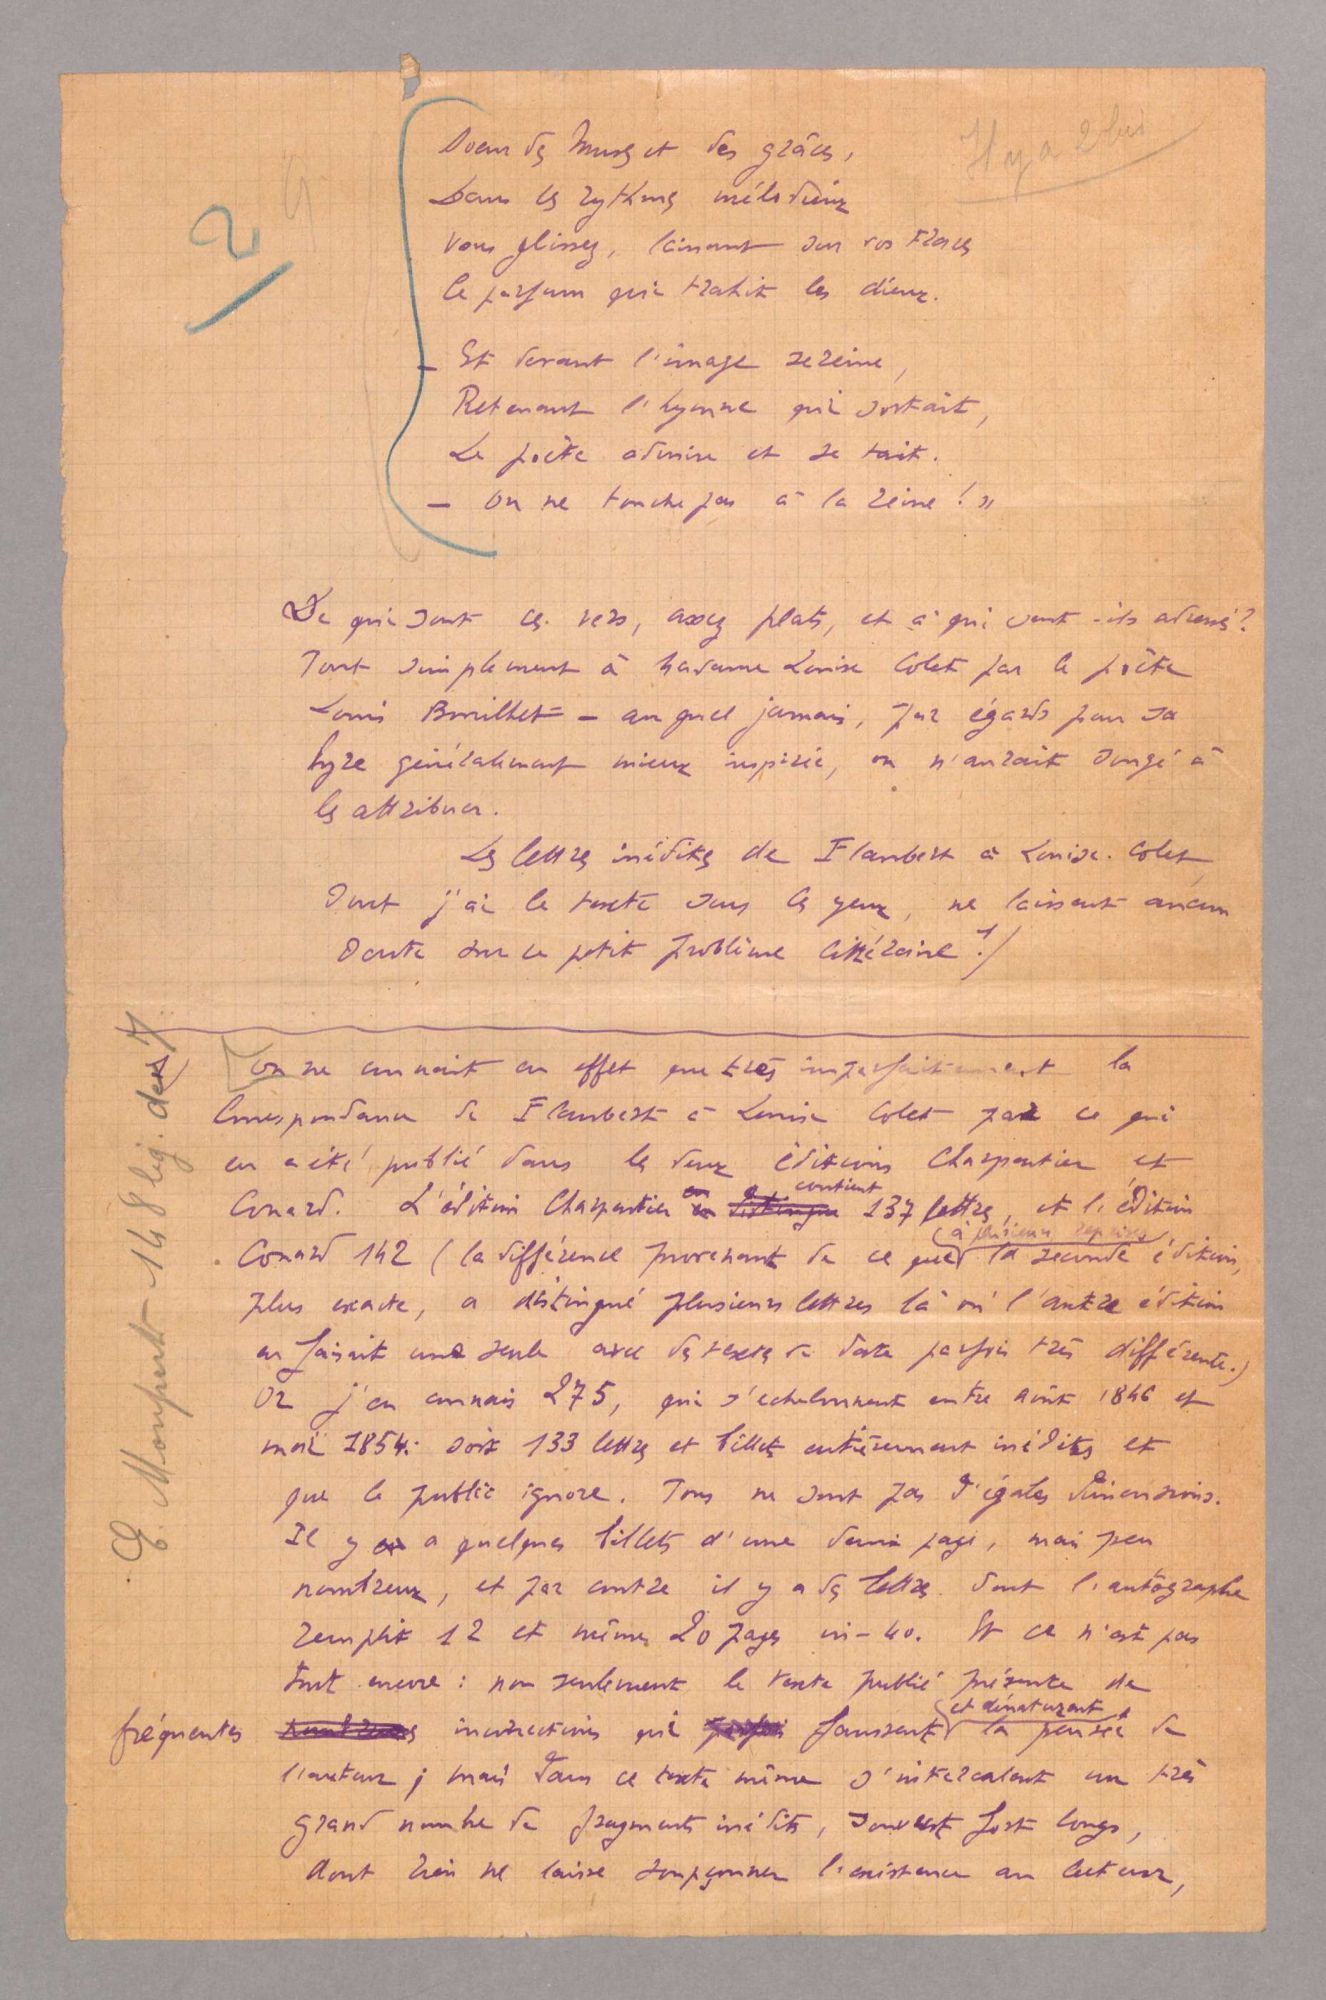 Il y a 2 bis
2
Soeur des Muses et des grâces,
Dans les rythmes mélodieux
Vous glissez, laissant sur vos traces
le parfum qui trahit les dieux.
- Et devant l'image sereine,
Retenant l'hymne qui sortait,
Le poète admire et se tait.
- On ne touche pas à la reine ! »
De qui sont ces vers, assez plats, et à qui sont-ils adressés ?
Tout simplement à Madame Louise Colet par le poète
Louis Bouilhet - auquel jamais, par égards pour sa
lyre généralement mieux inspirée, on n'aurait songé à
les attribuer.
Les lettres inédites de Flaubert à Louise Colet,
dont j'ai le texte sous les yeux, ne laissent aucun
doute sur ce petit problème littéraire !/
On ne connait en effet que très imparfaitement la
Correspondance de Flaubert à Louise Colet par ce qui
en a été publié dans les deux éditions Charpentier et
Conard. L'édition Charpentier en contient 137 lettres, et l'édition
Conard 142 (la différence provenant de ce que à plusieurs reprises la seconde édition,
plus exacte, a distingué plusieurs lettres là où l'autre édition
en faisait une seule avec des textes de date parfois très différente.)
Or j'en connais 275, qui s'échelonnent entre août 1846 et
mai 1854 : soit 133 lettres et billets entièrement inédits et
que le public ignore. Tous ne sont pas d'égales dimensions.
Il y a quelques billets d'une demi page, mais peu
nombreux, et par contre il y a des lettres dont l'autographe
remplit 12 et même 20 pages in-4o. Et ce n'est pas
tout encore : non seulement le texte publié présente de
fréquentes incorrections qui faussent et dénaturent la pensée de
l'auteur ; mais dans ce texte même s'intercalent un très
grand nombre de fragments inédits, souvent fort longs,
dont rien ne laisse soupçonner l'existence au lecteur,